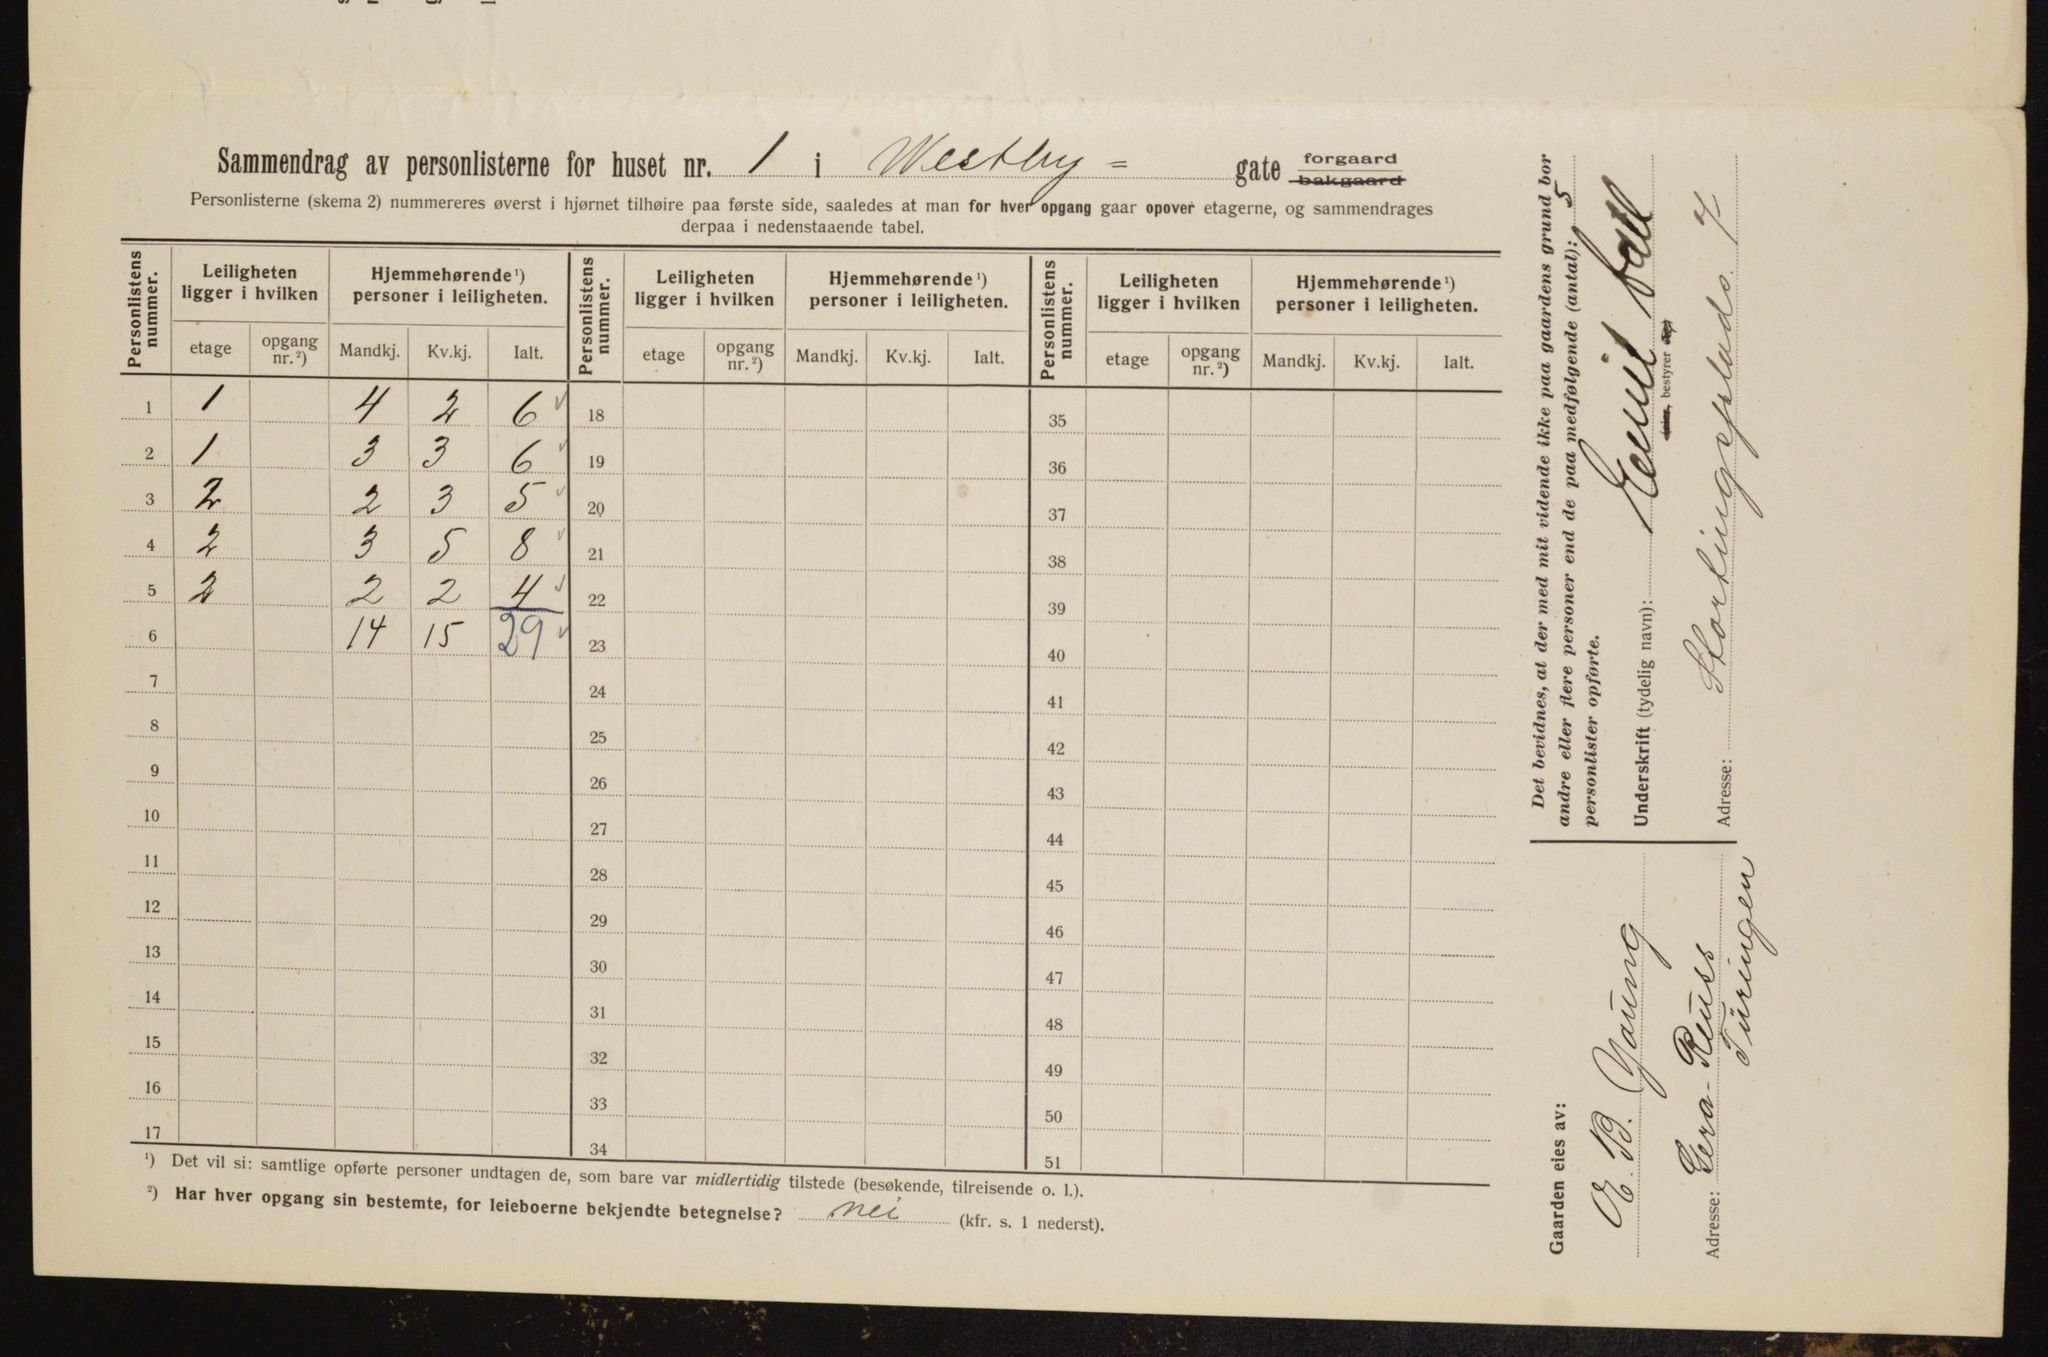 Sammendrag av personlisterne for huset nr. 1 i Westby= gate forgaard bakgaard
Personlisterne (skema 2) nummereres øverst i hjørnet tilhøire paa første side, saaledes at man for hver opgang gaar opover etagerne, og sammendrages
derpaa i nedenstaaende tabel.
Personlistens nummer. Leiligheten ligger i hvilken Hjemmehørende ¹) personer i leiligheten. Personlistens nummer. Leiligheten ligger i hvilken Hjemmehørende ¹) personer i leiligheten. Personlistens nummer. Leiligheten ligger i hvilken Hjemmehørende ¹) personer i leiligheten.
etage opgang nr. ²) Mandkj. Kv.kj. Ialt. etage opgang nr. ²) Mandkj. Kv.kj. Ialt. etage opgang nr. ²) Mandkj. Kv.kj. Ialt.
1 1 4 2 6 18 35
2 1 3 3 6 19 36
3 2 2 3 5 20 37
4 2 3 5 8 21 38
5 2 2 2 4 22 39
6 14 15 29 23 40
7 24 41
8 25 42
9 26 43
10 27 44
11 28 45
12 29 46
13 30 47
14 31 48
15 32 49
16 33 50
17 34 51
¹) Det vil si: samtlige opførte personer undtagen de, som bare var midlertidig tilstede (besøkende, tilreisende o. l.).
²) Har hver opgang sin bestemte, for leieboerne bekjendte betegnelse? nei (kfr. s. 1 nederst).
Det bevidnes, at der med mit vidende ikke paa gaardens grund bor
andre eller flere personer end de paa medfølgende (antal): 5
personlister opførte.
Underskrift (tydelig navn): Emil
bestyrer
Adresse: Stortingsplads. 7
Gaarden eies av:
B. Young
Adresse: Gera-Reuss
Türingen